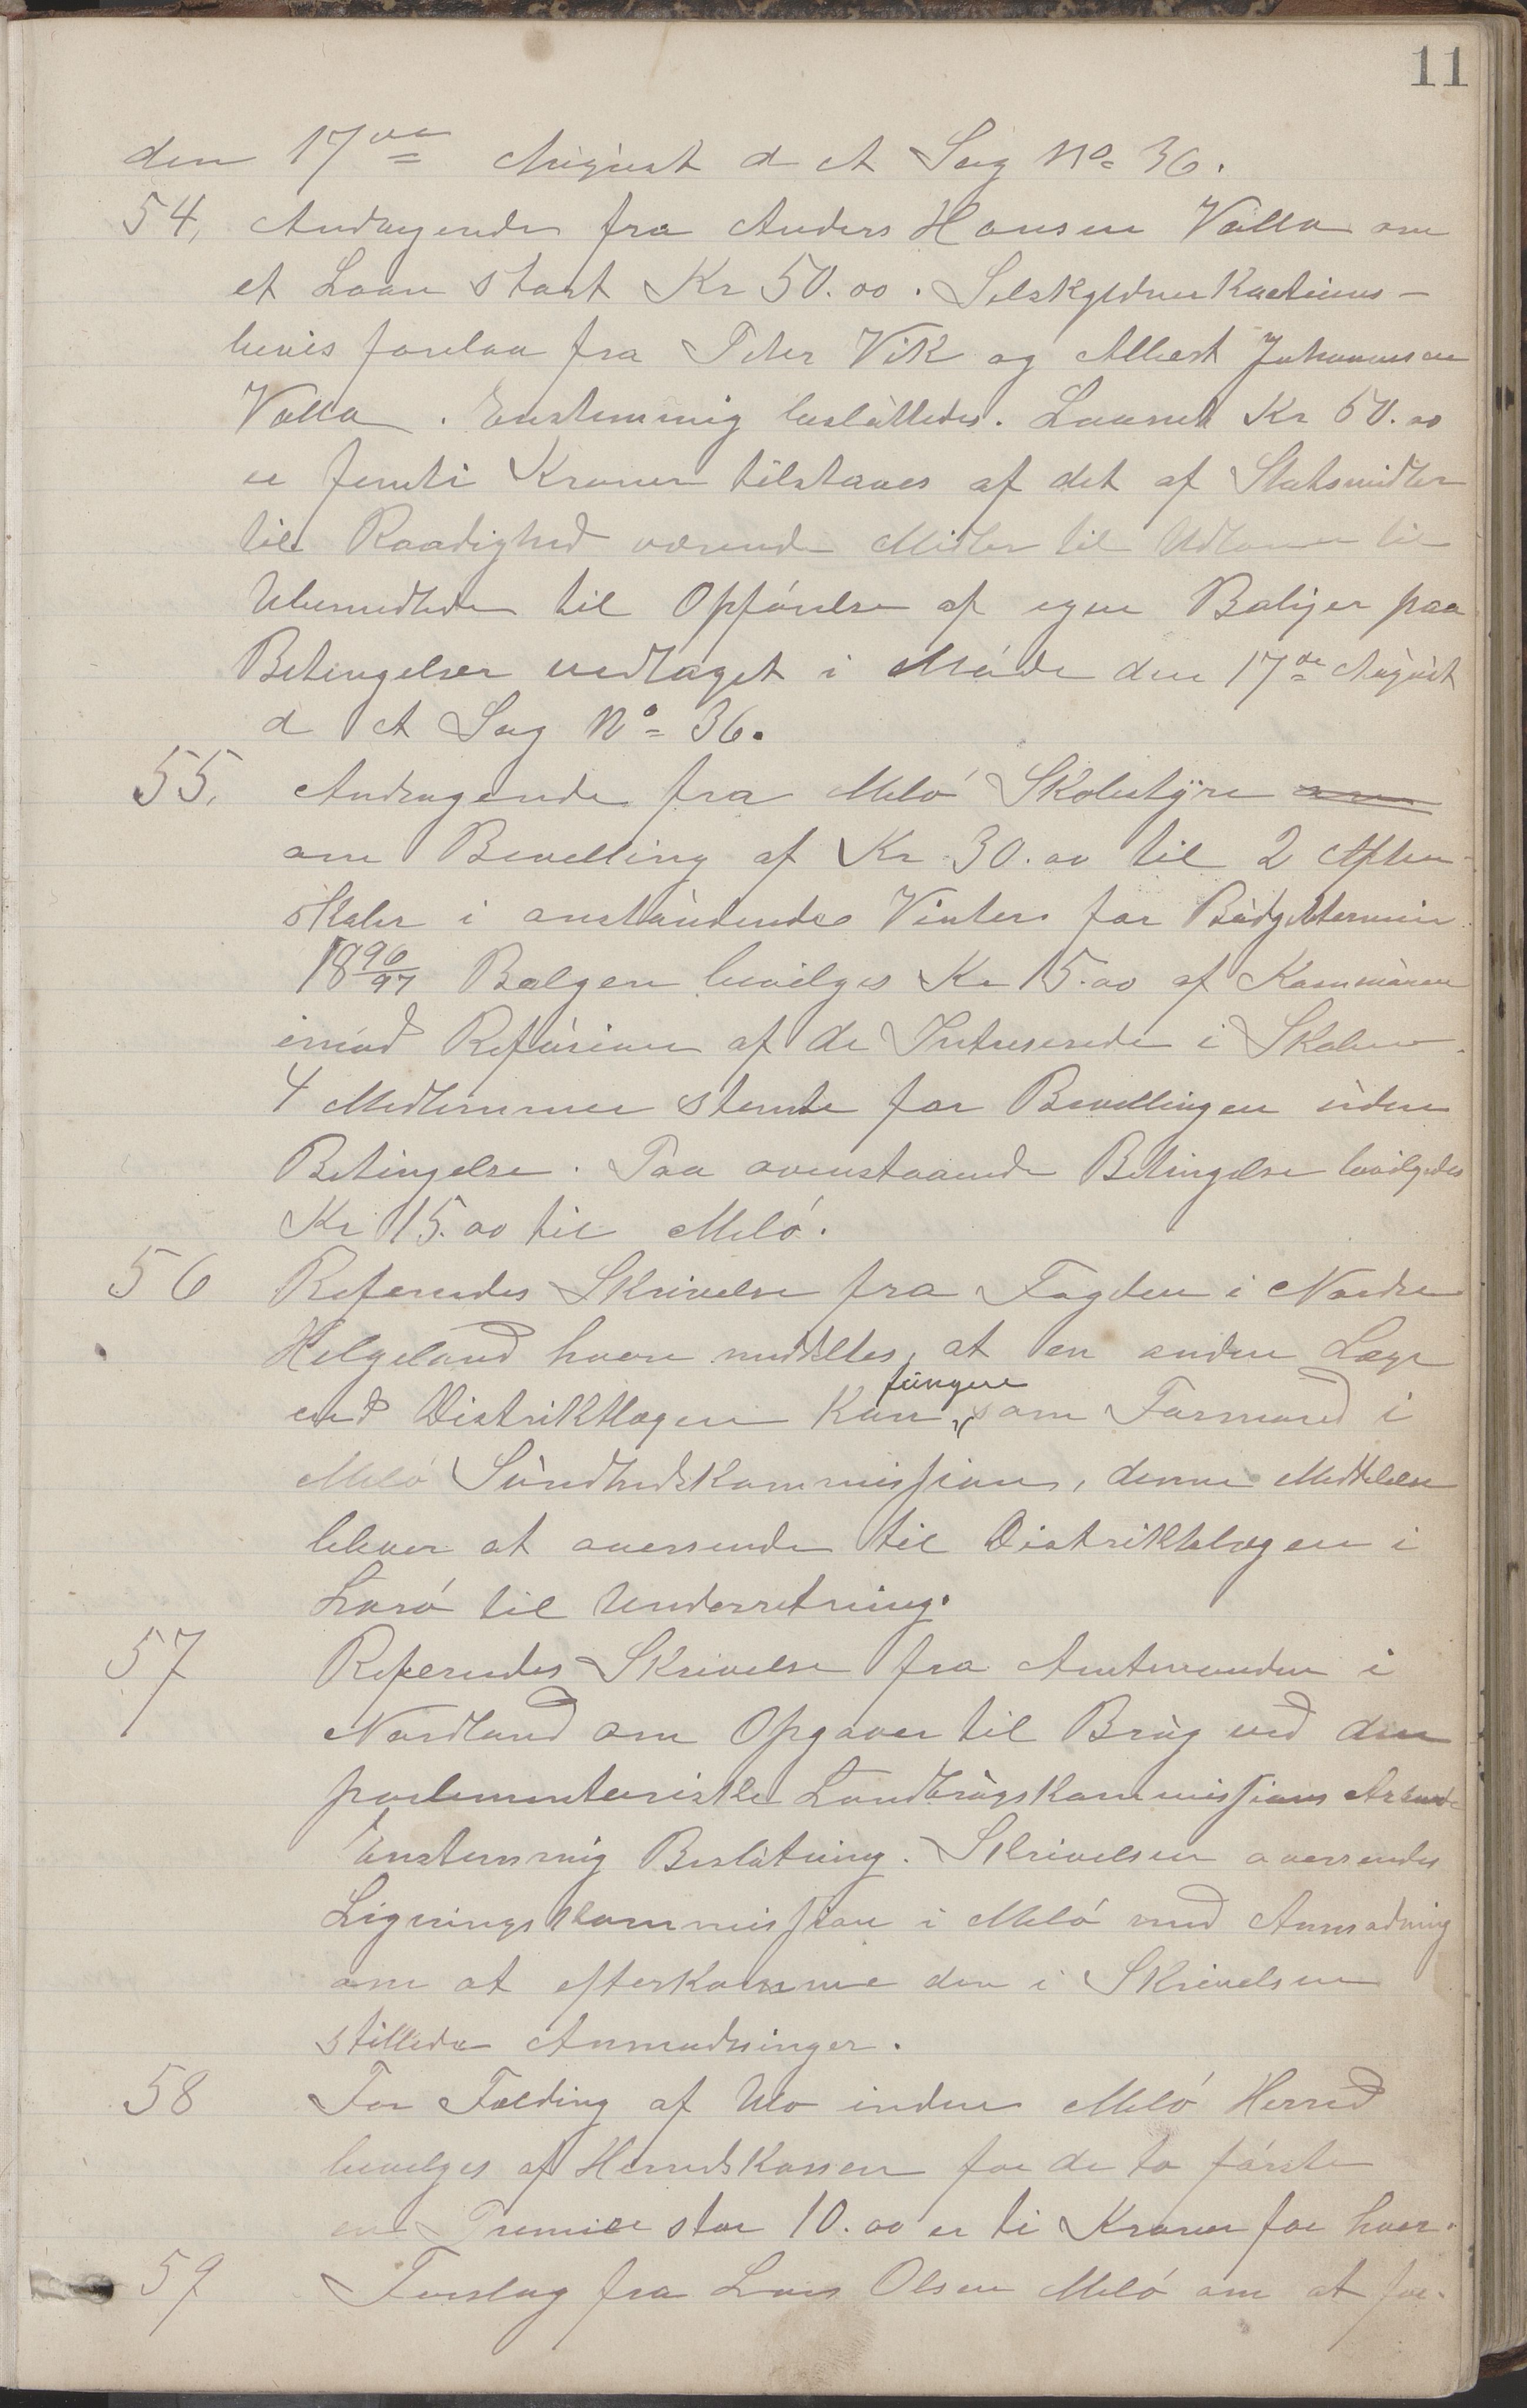 11
den 17de August d A Sag No 36.
54, Andragende fra Anders Hansen Valla om
et Laan stort Kr 50.00. Selskyldnerkautions-
bevis forelaa fra Peter Vik og Albert Johannesen
Valla. Enstemmig besluttedes. Laanet Kr 50.00
er femti Kroner tilstaaes af det af Statsmidler
til Raadighed værende Midler til Udlaan til
Ubemidlede til Opførelse af egne Boliger paa
Betingelser vedtaget i Møde den 17de August
d A Sag No 36.
55. Andragende fra Melø Skolestyre om
om Bevelling af Kr 30.00 til 2 Aften-
skoler i anstundende Vinter for Budgettermin
1896/97 Bolgen bevilges Kr 15.00 af Kommunen
imod Refusion af de Intreserede i Skolen.
4 Medlemmer stemte for Bevellingen uden
Betingelse. Paa ovenstaaende Betingelse bevilgedes
Kr 15.00 til Melø.
56 Refereredes Skrivelse fra Fogden i Nordre
Helgeland hvori meddeltes, at en anden Læge
end Distriktlægen kan fungere som Formand i
Melø Sundhedskommission, denne Meddelelse
bliver at oversende til Distriktslægen i
Lurø til Underretning.
57 Refereredes Skrivelse fra Amtmanden i
Nordland om Opgaver til Brug ved den
parlementariske Landbrugskommissions Arbeide
Enstemmig Beslutning. Skrivelsen oversendes
Ligningskommission i Melø med Anmodning
om at efterkomme den i Skrivelsen
stillede Anmodninger.
58 For Fælding af Ulv inden Melø Herred
bevilges af Herredskassen for de to første
en Premie stor 10.00 er ti Kroner for hver.
59 Forslag fra Lars Olsen Melø om at for-